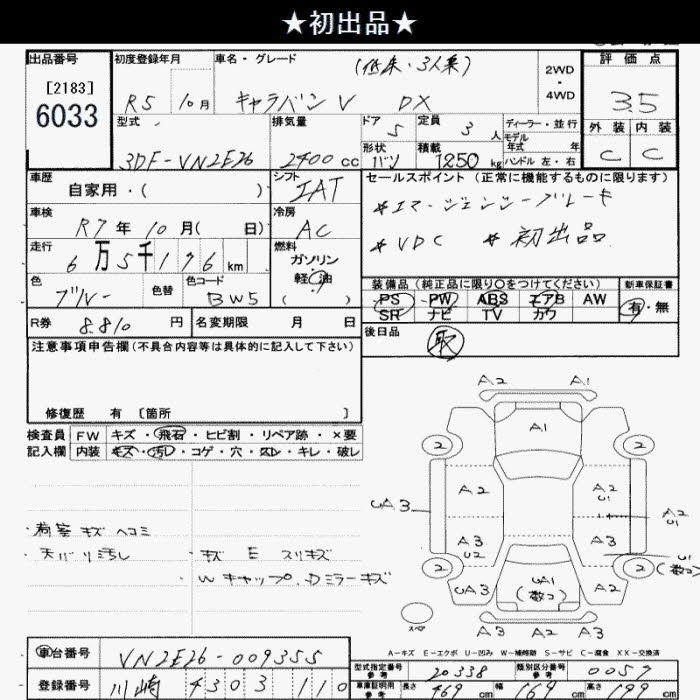 ★初出品★
出品番号 初度登録年月 車名・グレード (低床・3人乗) 2WD ・ 4WD 評価点
[2183]
6033 R5 10月 キャラバンV DX 3.5
型式 排気量 ドア 定員 ディーラー・並行 外装 内装
5 3人 モデル年式 年
3DF-VN2E26 2400cc 形状 バン 積載 1250kg ハンドル 左・右 C C
車歴 自家用・( ) シフト IAT セールスポイント (正常に機能するものに限ります)
*エマージェンシーブレーキ
車検 R7年10月( 日) 冷房 AC *VDC *初出品
走行 6万5千176km 燃料 ガソリン 軽油 ( )
装備品 (純正品に限り○をつけてください) 新車保証書
色 ブルー 色替 色コード BW5 PS PW ABS エアB AW 有・無
SR ナビ TV カワ
R券 8.810円 名変期限 月 日 後日品 取
注意事項申告欄 (不具合内容等は具体的に記入して下さい)
修復歴 有 [箇所 ]
検査員 FW キズ・飛石・ヒビ割・リペア跡・×要
記入欄 内装 キズ・汚レ・コゲ・穴・スレ・キレ・破レ
A2 A1
A1
2 2
A2 A2 U1
UA3 A2 U1
A3 U2 A3
U1 (数コ)
2 2
UA3 UA1 (数コ) A2
A3 A2 A3
スペア
・荷室 キズ ヘコミ
・天バリ汚レ ・キズ E スリキズ
・Wキャップ.Dミラーキズ
A-キズ E-エクボ U-凹み W-補修跡 S-サビ C-腐食 XX-交換済
車台番号 VN2E26-009355 型式指定番号 参考 20338 類別区分番号 参考 0057
登録番号 川崎 4303 110 車庫証明用 参考 長さ 469cm 幅 169cm 高さ 199cm